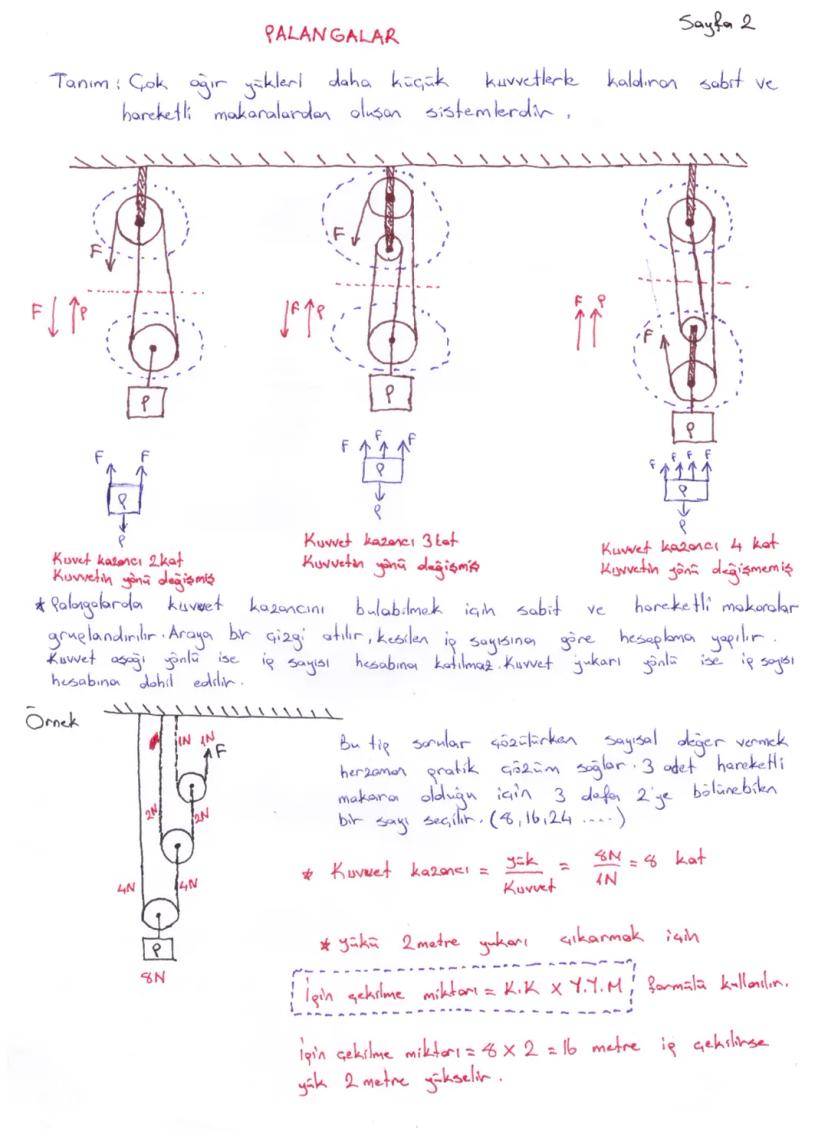 Sayfa 2
PALANGALAR
Tanım : Çok ağır yükleri daha küçük kuvvetlerle kaldıran sabit ve
hareketli makaralardan oluşan sistemlerdir.
F
F
F
F P
F P
F P
P
P
P
F F
F F F
F F F F
P
P
P
P
P
P
Kuvet kazancı 2 kat
Kuvvetin yönü değişmiş
Kuvvet kazancı 3 kat
Kuvvetin yönü değişmiş
Kuvvet kazancı 4 kat
Kuvvetin yönü değişmemiş
* Palangalarda kuvvet kazancını bulabilmek için sabit ve hareketli makaralar
gruplandırılır. Araya bir çizgi atılır, kesilen ip sayısına göre hesaplama yapılır.
Kuvvet aşağı yönlü ise ip sayısı hesabına katılmaz. Kuvvet yukarı yönlü ise ip sayısı
hesabına dahil edilir.
Örnek
1N 1N
F
2N 2N
4N 4N
P
8N
Bu tip sorular çözülürken sayısal değer vermek
herzaman pratik çözüm sağlar. 3 adet hareketli
makara olduğu için 3 defa 2'ye bölünebilen
bir sayı seçilir. (8, 16, 24 ....)
* Kuvvet kazancı = yük / Kuvvet = 8N / 1N = 8 kat
* yükü 2 metre yukarı çıkarmak için
İpin çekilme miktarı = K.K x Y.Y.M formülü kullanılır.
İpin çekilme miktarı = 8 x 2 = 16 metre ip çekilirse
yük 2 metre yükselir.